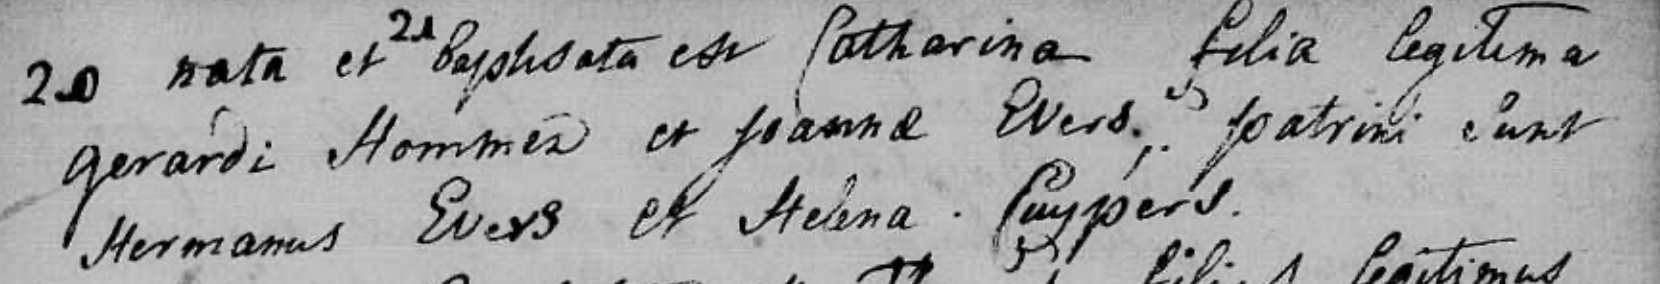 20 nata et 21 baptisata est Catharina filia legitima
gerardi Hommen et Joanna Evers. patrini sunt
Hermanus Evers et Helena. Cuypers.
filius legitimus